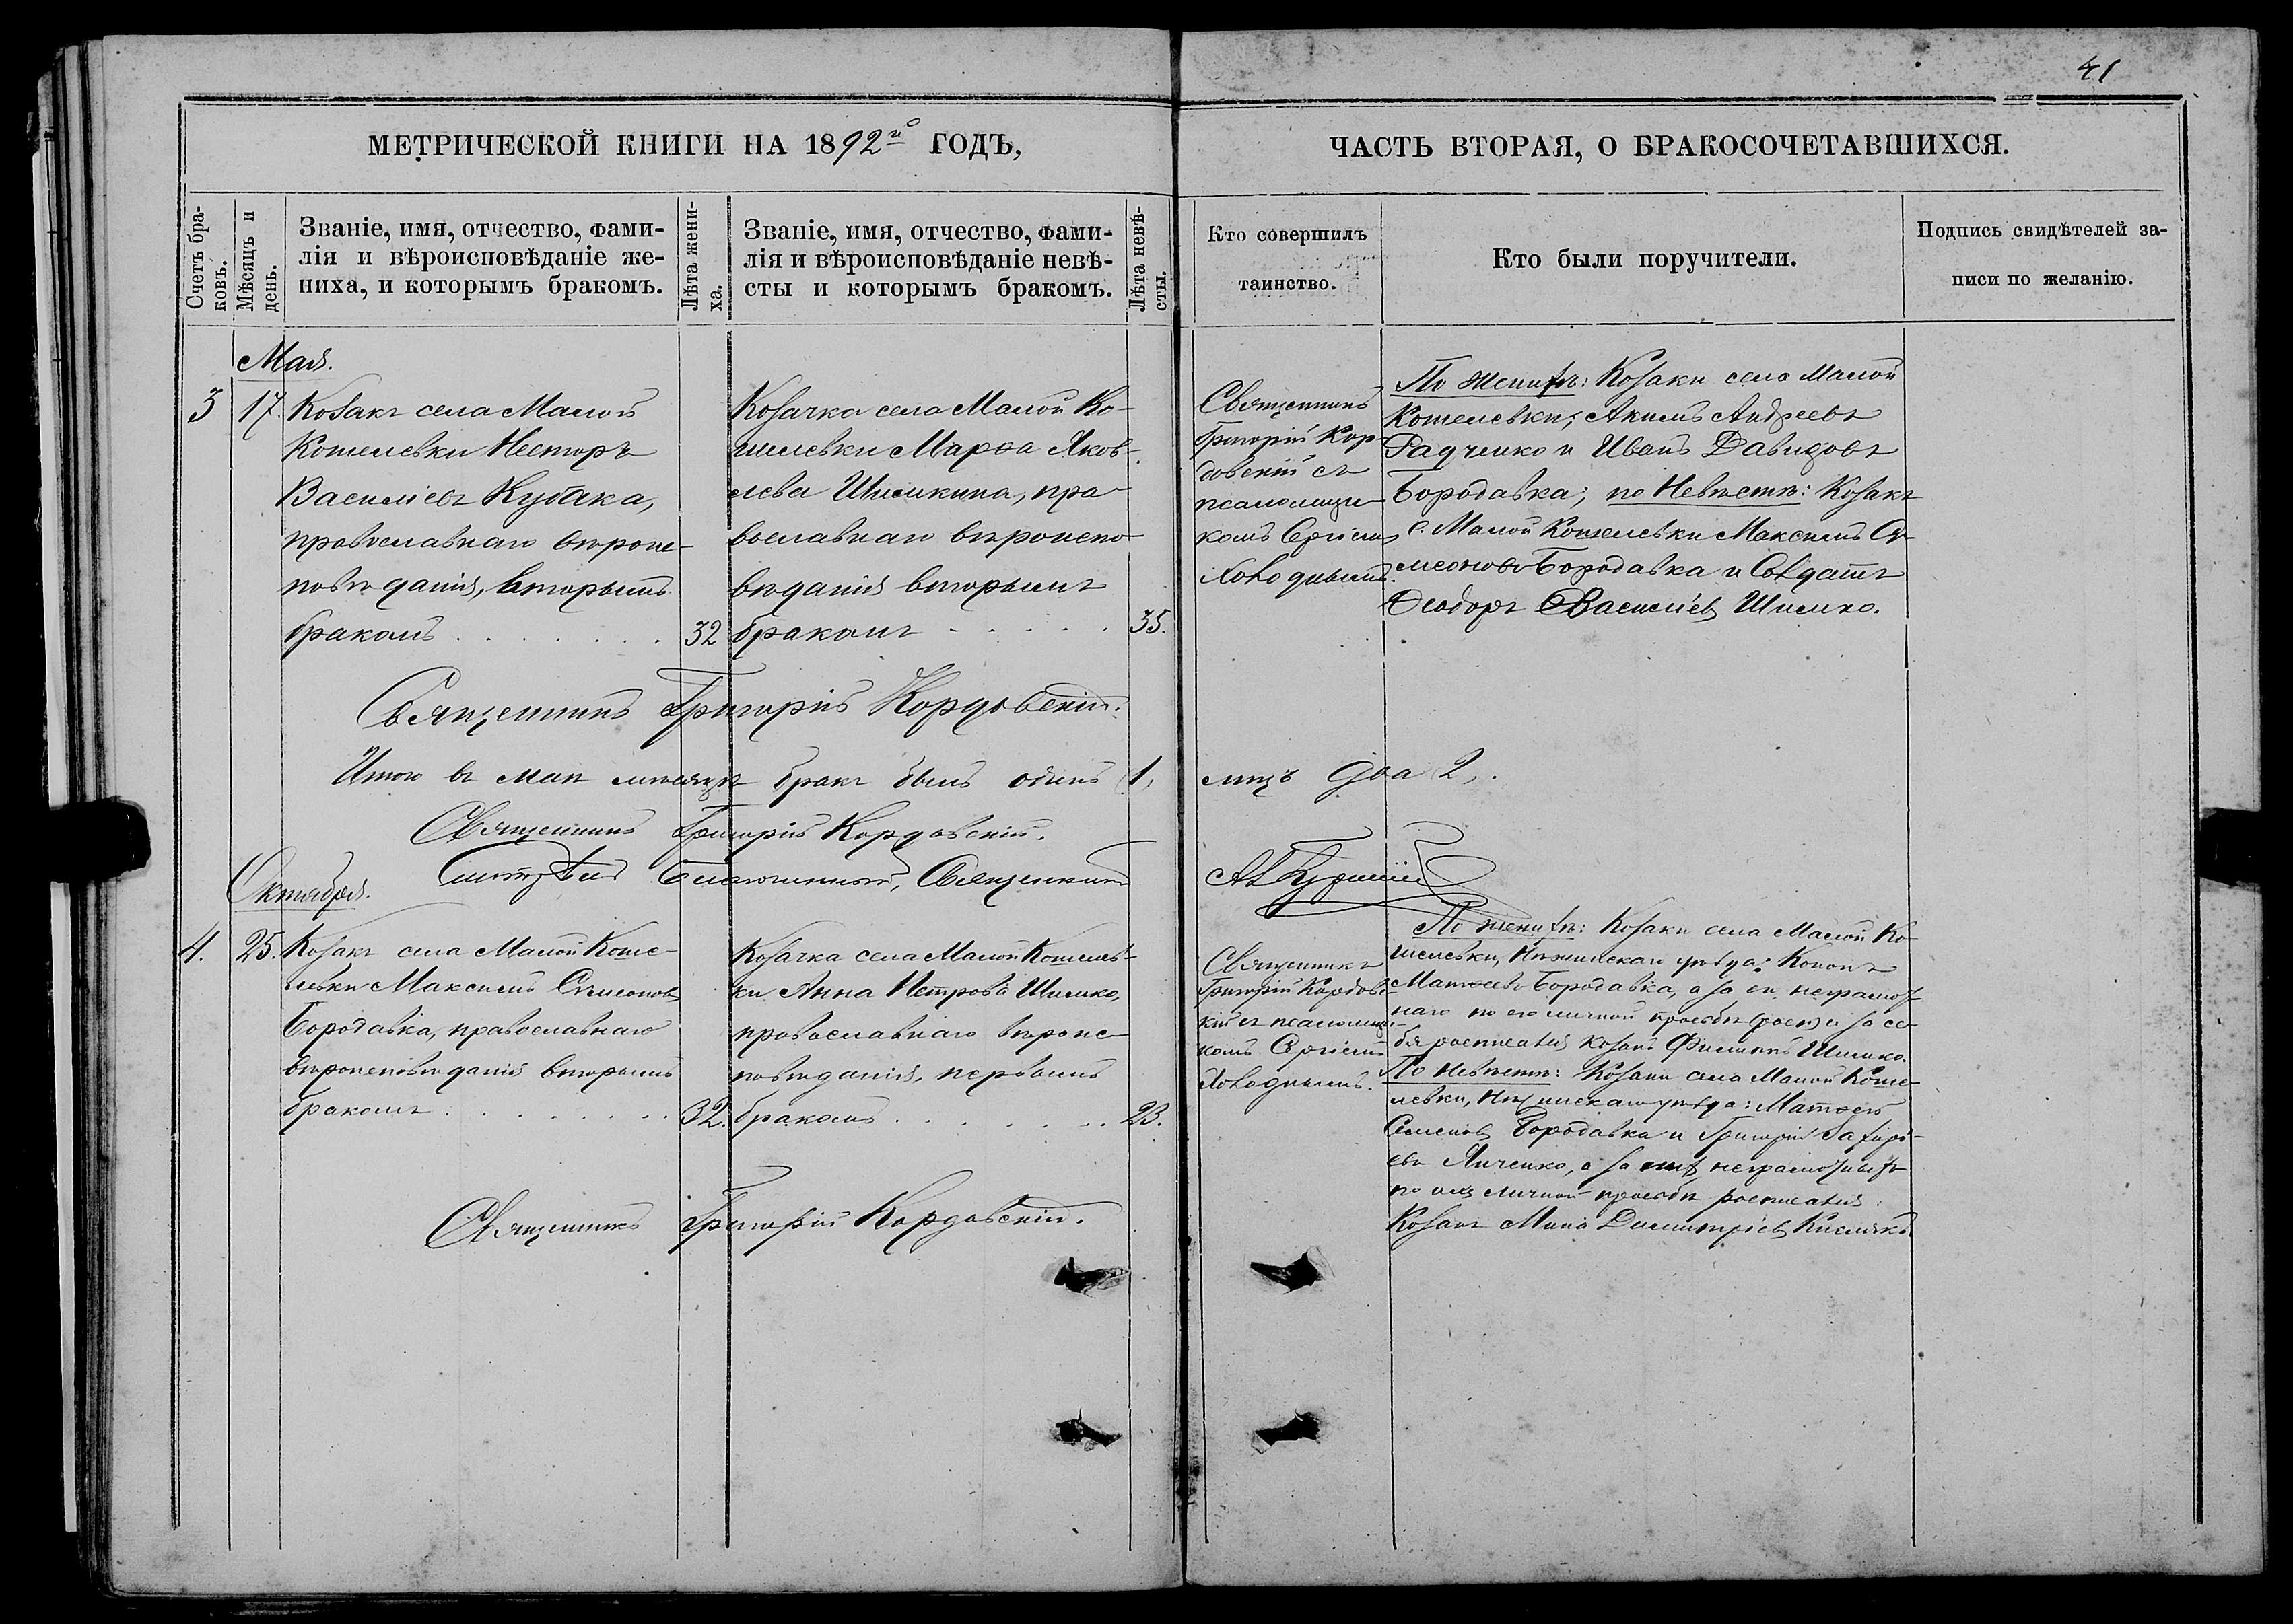 41
МЕТРИЧЕСКОЙ КНИГИ НА 1892й ГОДЪ,
ЧАСТЬ ВТОРАЯ, О БРАКОСОЧЕТАВШИХСЯ.
Счетъ бра-
ковъ.
Мѣсяцъ и
день.
Званіе, имя, отчество, фами-
лія и вѣроисповѣданіе же-
ниха, и которымъ бракомъ.
Лѣта жени-
ха.
Званіе, имя, отчество, фами-
лія и вѣроисповѣданіе невѣ-
сты и которымъ бракомъ.
Лѣта невѣ-
сты.
Кто совершилъ
таинство.
Кто были поручители.
Подпись свидѣтелей за-
писи по желанію.
Мая.
3
17.
Козакъ села Малой
Кошелевки Несторъ
Василіевъ Кубака,
православнаго вѣроис-
повѣданія, вторымъ
бракомъ
32
Козачка села Малой Ко-
шелевки Марѳа Яков-
лева Шилкина, пра-
вославнаго вѣроиспо-
вѣданія вторымъ
бракомъ
35.
Священникъ
Григорій Кор-
довскій съ
псаломщи-
комъ Сергіемъ
Холоднымъ.
По женихѣ: Козаки села Малой
Кошелевки, Акимъ Андреевъ
Радченко и Иванъ Давидовъ
Бородавка; по Невѣстѣ: Козакъ
с. Малой Кошелевки Максимъ Си-
меоновъ Бородавка и Солдатъ
Ѳеодоръ Василіевъ Шилко.
Священникъ Григорій Кордовскій.
Итого въ маѣ мѣсяцѣ бракъ былъ одинъ 1,
лицъ два 2,.
Священникъ Григорій Кордовскій.
Благочинный, Священникъ
Октября.
4.
25.
Козакъ села Малой Коше-
левки Максимъ Симеоновъ
Бородавка, православнаго
вѣроисповѣданія вторымъ
бракомъ
32.
Козачка села Малой Кошелев-
ки Анна Петрова Шилко,
православнаго вѣроис-
повѣданія, первымъ
бракомъ
23.
Священникъ
Григорій Кордовс-
кій съ псаломщи-
комъ Сергіемъ
Холоднымъ.
По женихѣ: Козаки села Малой Ко-
шелевки, Нѣжинскаго уѣзда: Кононъ
Матѳеевъ Бородавка, а за его, неграмот-
наго по его личной просьбѣ и за се-
бя росписался козакъ Филипъ Шилко.
По Невѣстѣ: Козаки села Малой Коше-
левки, Нѣжинскаго уѣзда: Матѳей
Семеновъ Бородавка и Григорій Захарі-
евъ Яченко, а за ихъ неграмотныхъ
по ихъ личной просьбѣ росписался:
Козакъ Мина Димитріевъ Кислякъ.
Священникъ Григорій Кордовскій.